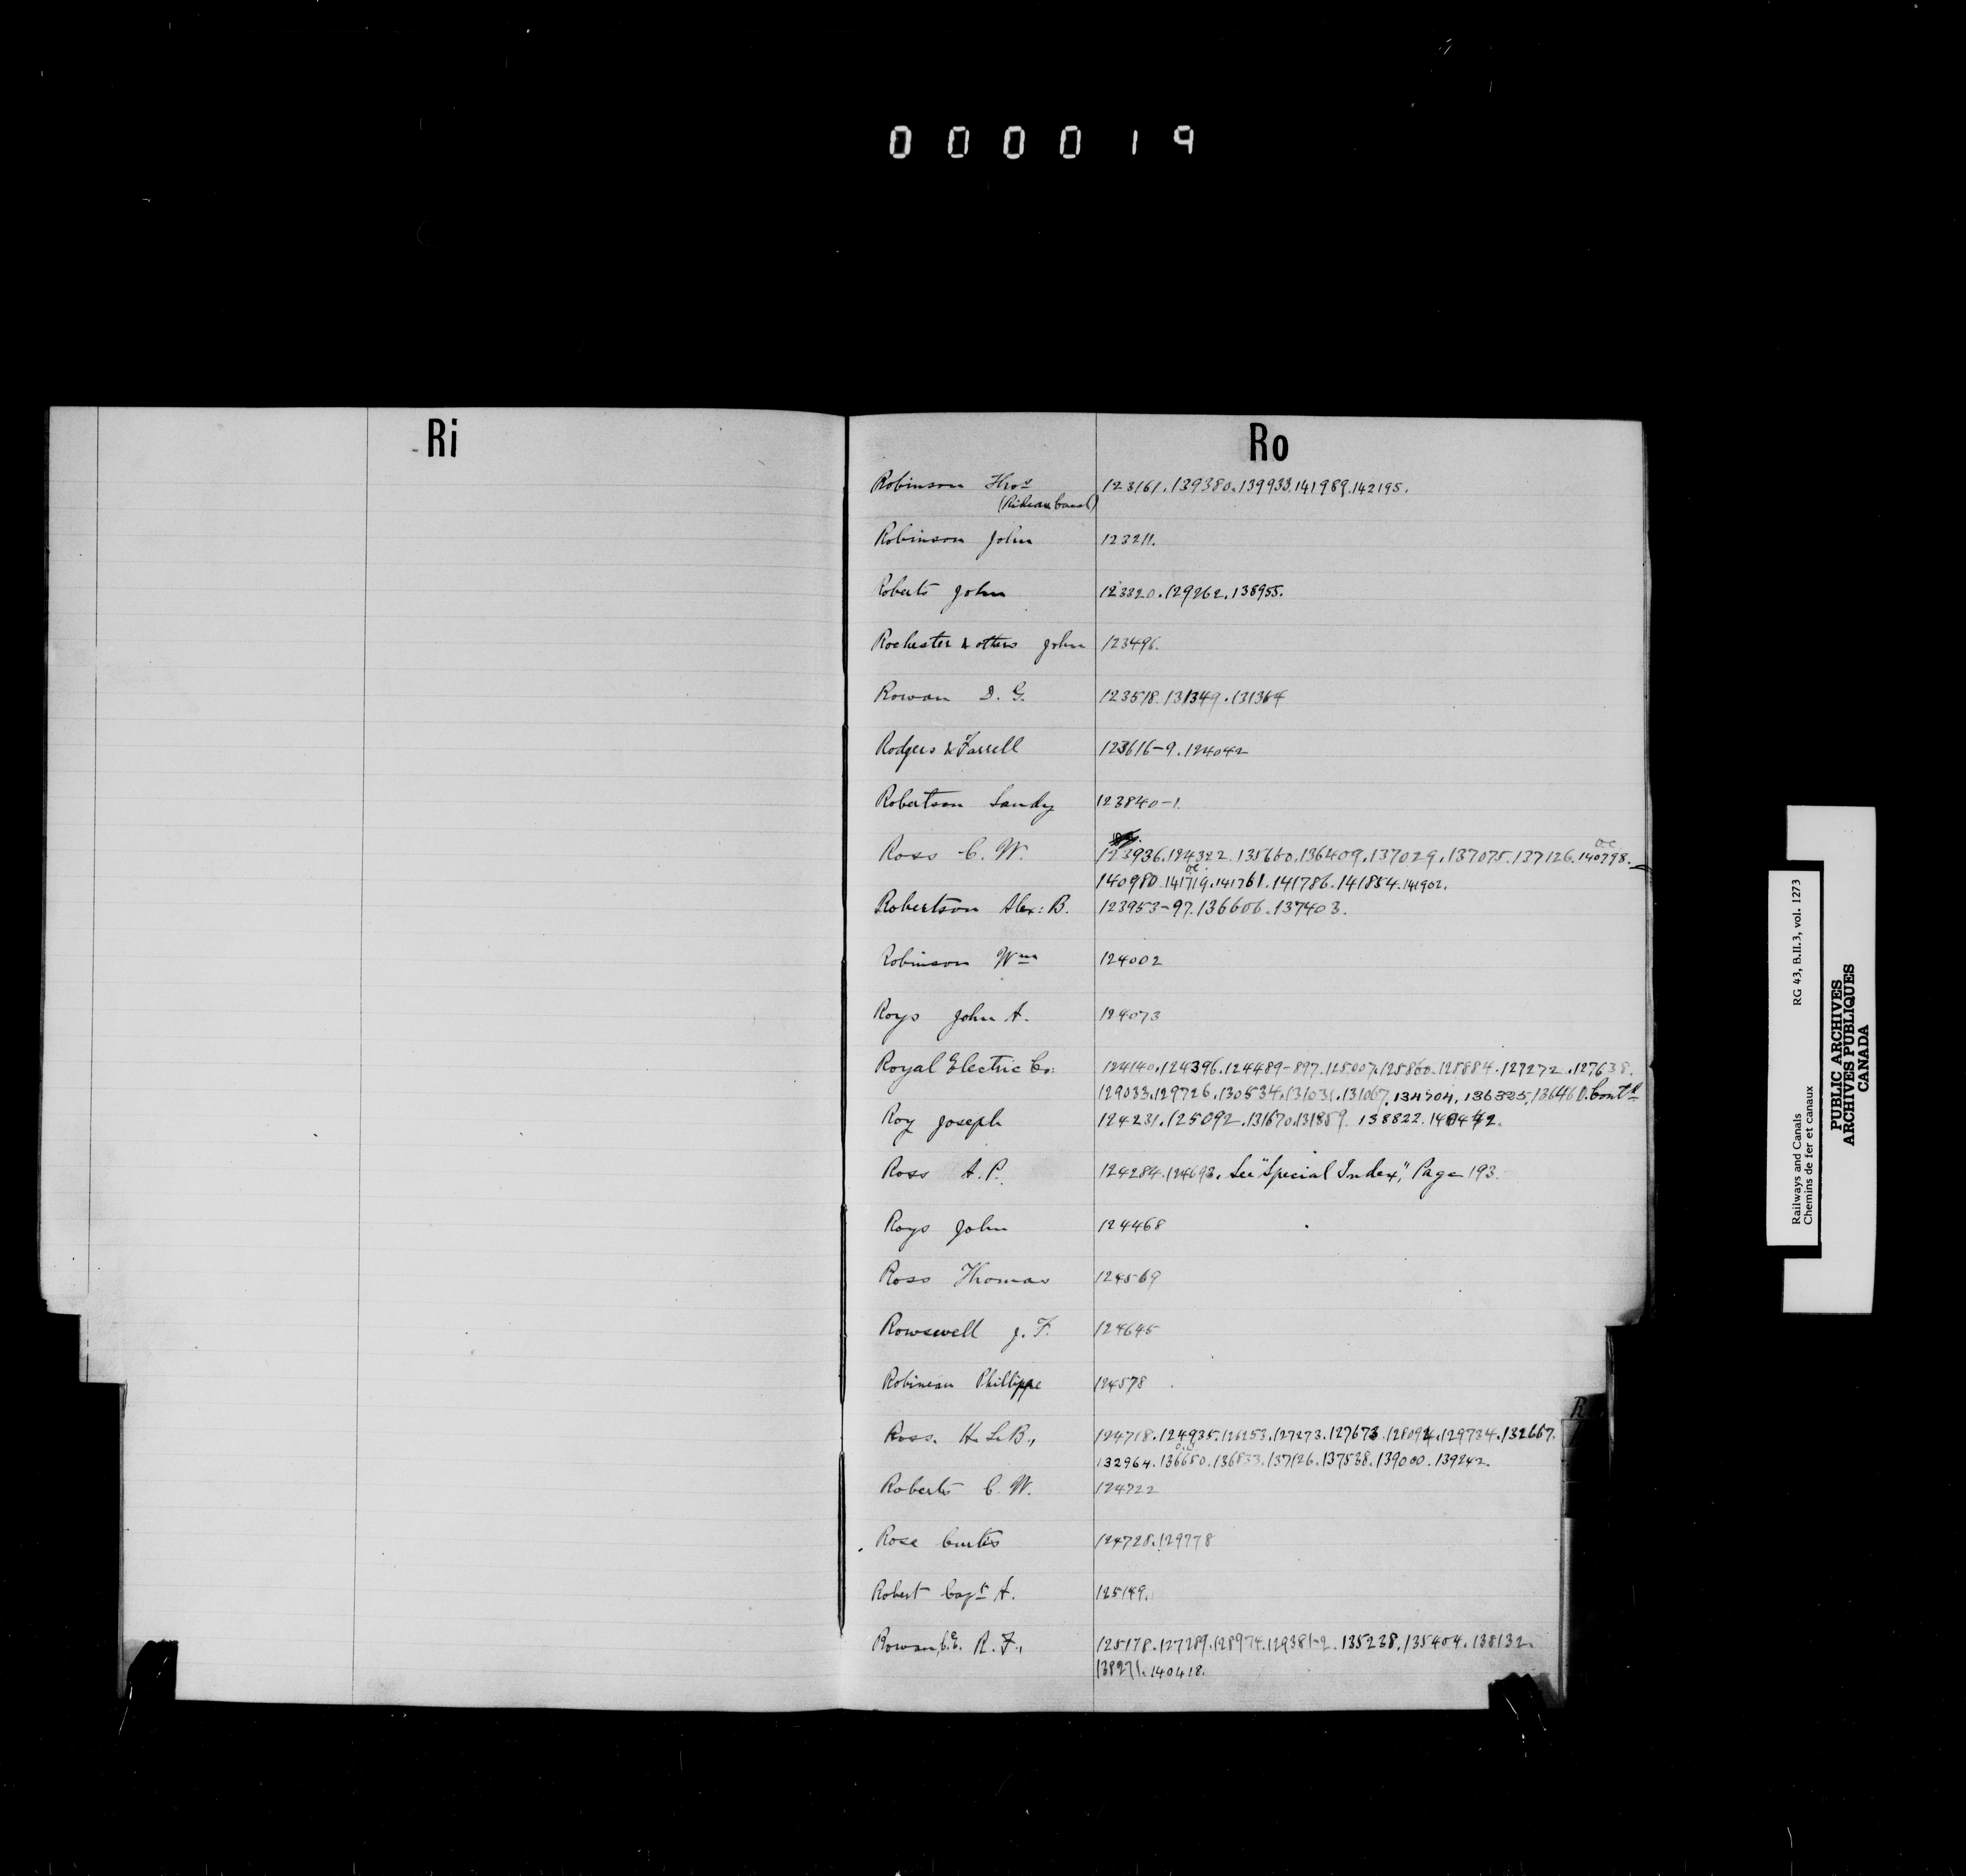 000019
Ri
Ro
Robinson Thos 123161.139380.139933.141989.142195.
(Rideau Canal)
Robinson John 123211.
Roberts John 123320.129262.138955.
Rochester & others John 123496.
Rowan D. G. 123518.131349.131364
Rodgers & Farrell 123616-9.124042
Robertson Sandy 123840-1.
Ross C. W. 123936.124322.135660.136409.137029.137075.137126.140798.
140980.141719.141761.141786.141854.141902.
Robertson Alex: B. 123953-97.136606.137403.
Robinson Wm 124002
Roys John A. 124073
Royal Electric Co: 124140.124396.124489-897.125007.125860.125884.127272.127638.
129033.129726.130534.131031.131067.134704.136325.136460.Contd
Roy Joseph 124231.125092.131670.131859.138822.140442.
Ross A. P. 124284.124693. See "Special Index," Page 193.
Roys John 124468
Ross Thomas 124569
Rowsewell J. F. 124645
Robineau Phillippe 124578
Ross. H. LeB., 124718.124935.126253.127273.127673.128094.129734.132667.
132964.136650.136833.137126.137538.139000.139242.
Roberts C. W. 124722
Rose Curtis 124728.129778
Robert Capt A. 125149.
Rowan C.E. R. F., 125178.127289.128974.129381-2.135238.135404.138132.
138271.140418.
R
Railways and Canals RG 43, B.II.3, vol. 1273
Chemins de fer et canaux
PUBLIC ARCHIVES
ARCHIVES PUBLIQUES
CANADA